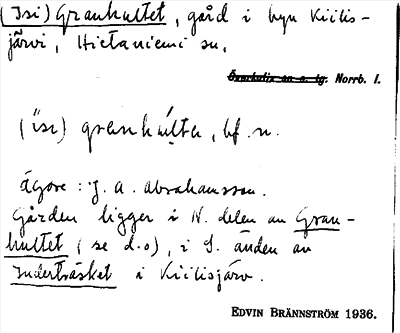 (Isi) Granhultet, gård i byn Kiilis-
järvi, Hietaniemi sn,
Överkalix sn o. tg. Norrb. l.
(isi) granhúlta, bf. n.
Ägare: J. A. Abrahamsson.
Gården ligger i N. delen av Gran-
hultet (se d.o), i S. änden av
Inderträsket i Kiilisjärv.
EDVIN BRÄNNSTRÖM 1936.